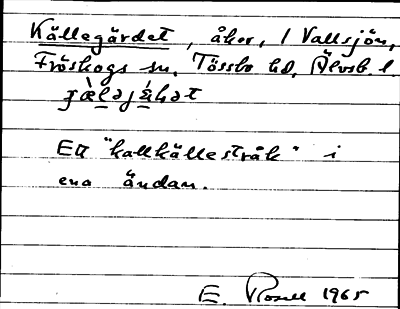 Källegärdet, åker, 1 Vallsjön,
Fröskogs sn, Tössbo hd, Älvsb. l.
Ett "kallkällestråk" i
ena ändan.
E. 1965